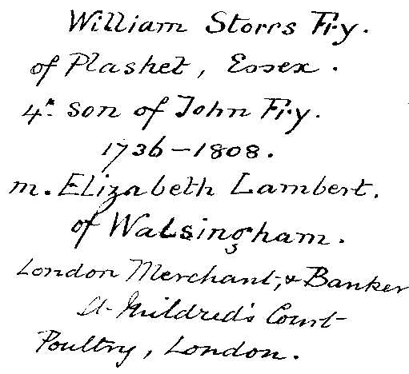 William Storrs Fry.
of Plashet, Essex.
4th son of John Fry.
1736-1808.
m. Elizabeth Lambert.
of Walsingham.
London Merchant, & Banker
St. Mildred's Court
Poultry, London.